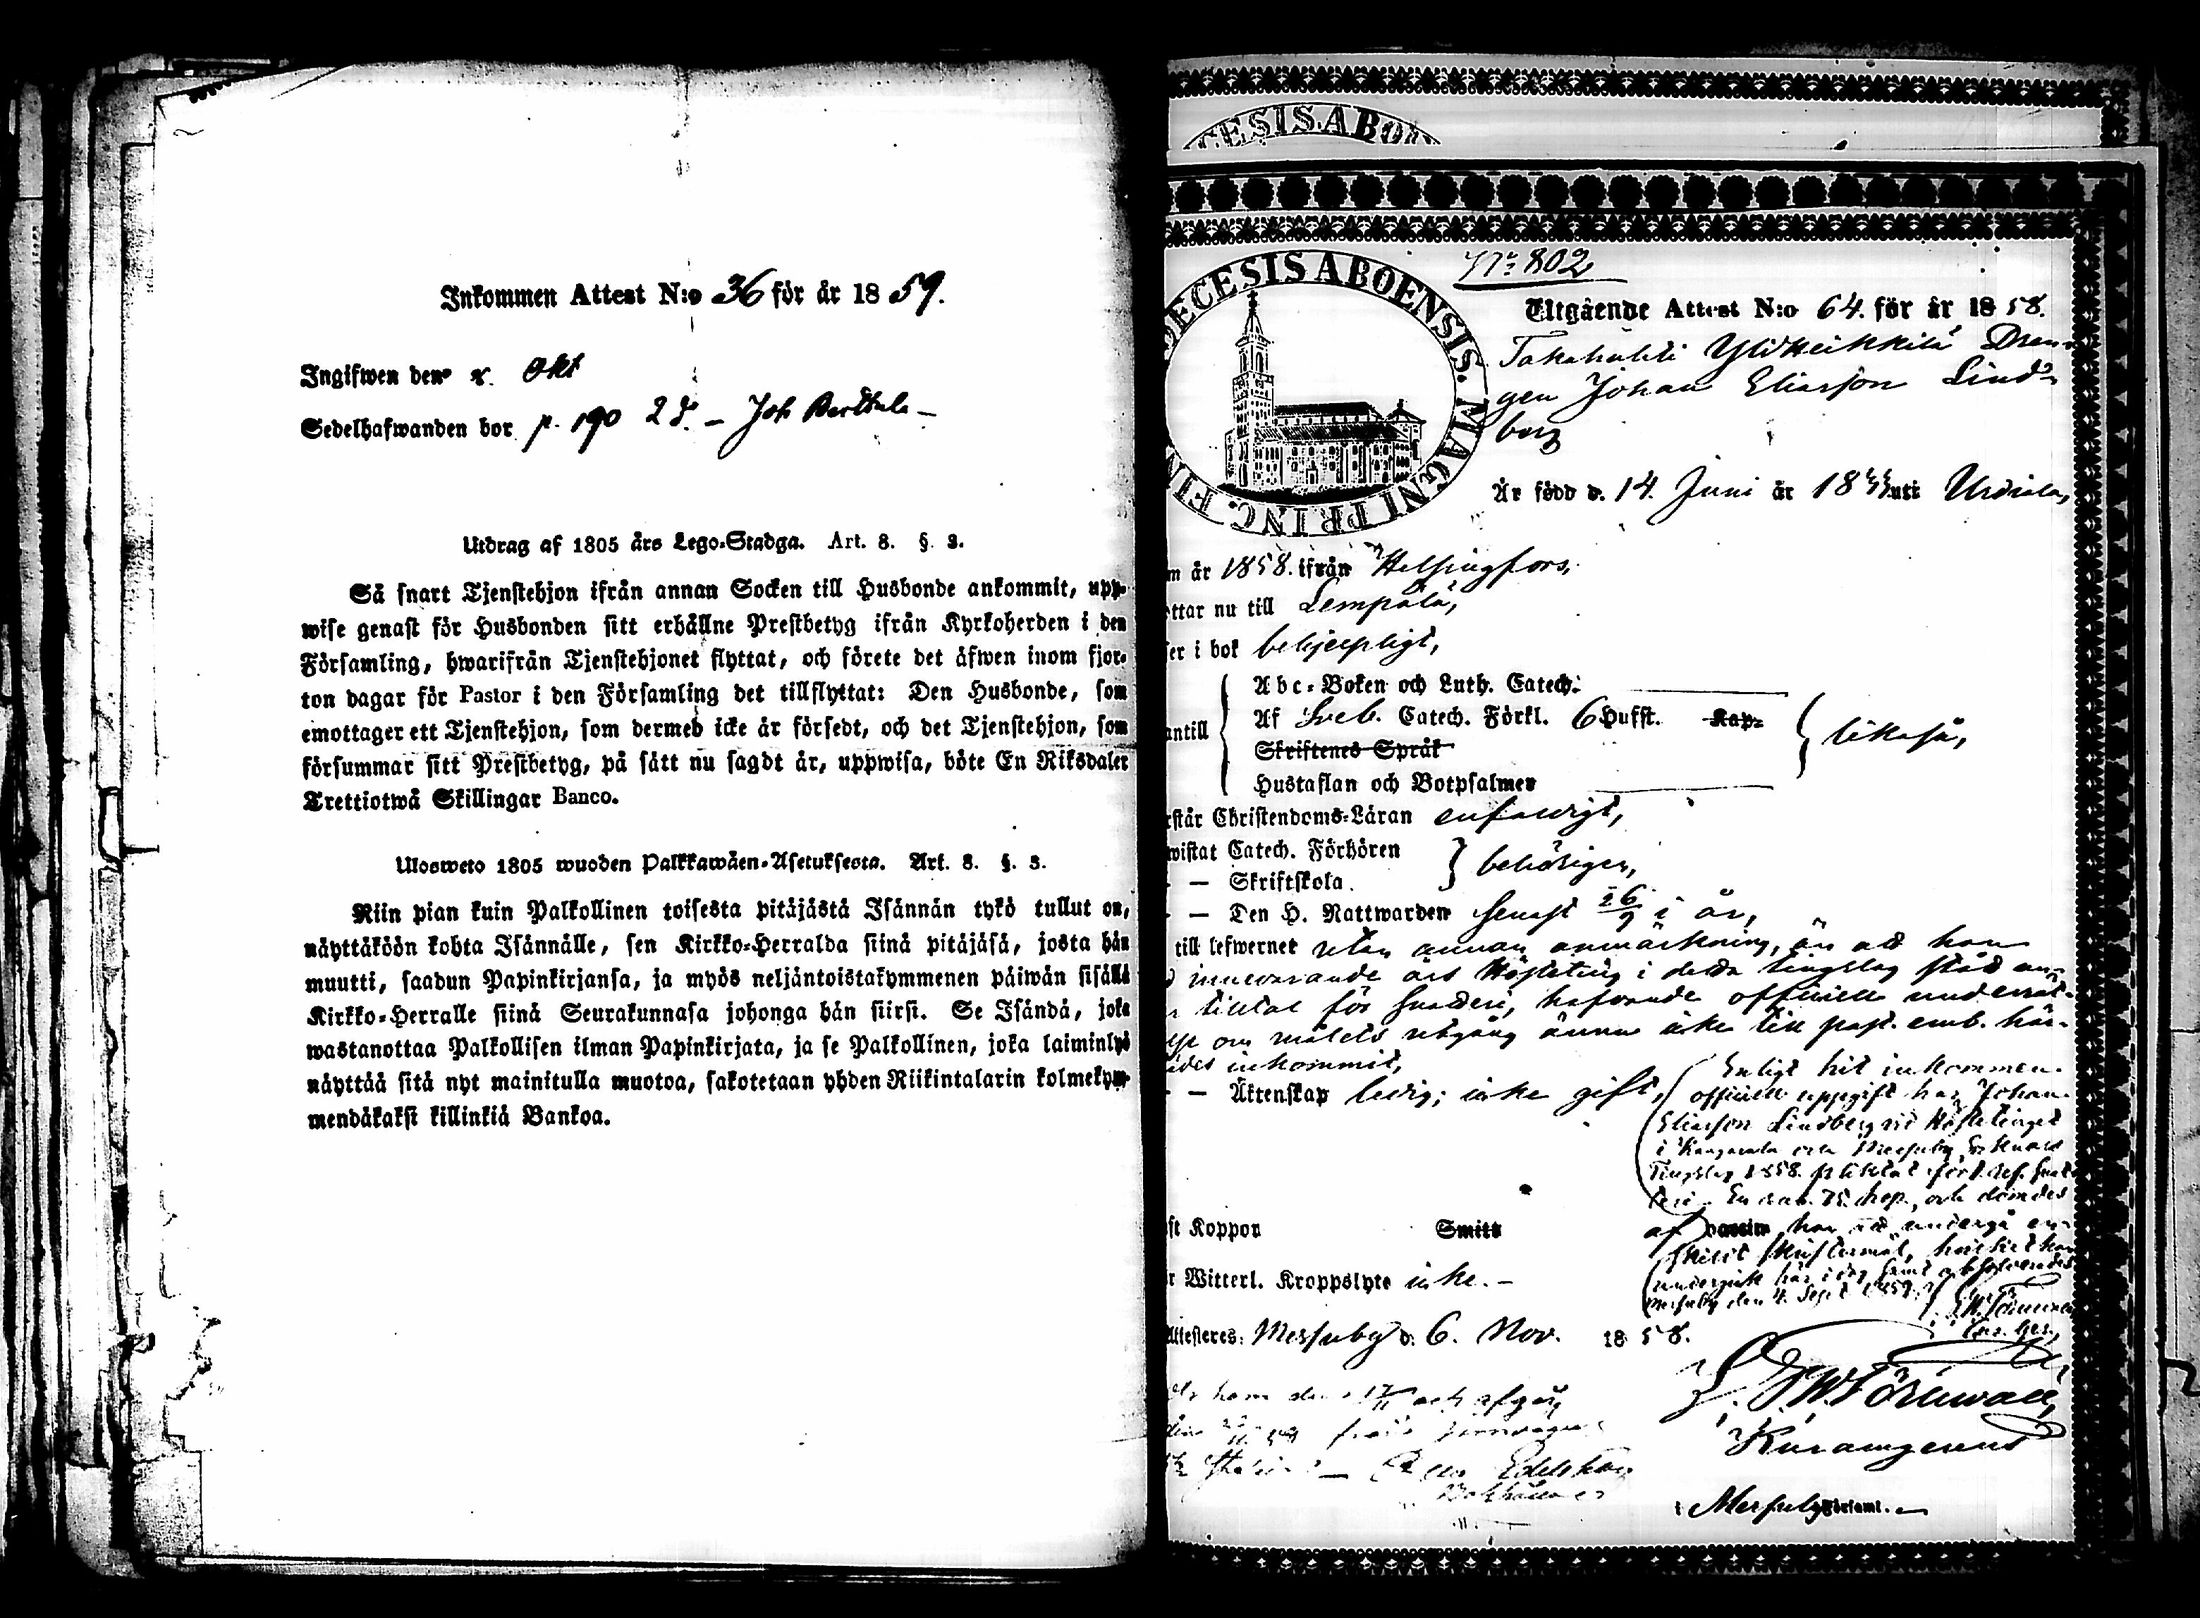 Inkommen Attest N:o 36 för år 1859.
Ingifwen den Okt
Sedelhafwanden bor p. 190 2 d. – Joh
Utdrag af 1805 års Lego-Stadga. Art. 8. §. 3.
Så snart Tjenstehjon ifrån annan Socken till Husbonde ankommit, upp-
wise genast för Husbonden sitt erhållne Prestbetyg ifrån Kyrkoherden i den
Församling, hwarifrån Tjenstehjonet flyttat, och förete det äfwen inom fjor-
ton dagar för Pastor i den Församling det tillflyttat: Den Husbonde, som
emottager ett Tjenstehjon, som dermed icke är försedt, och det Tjenstehjon, som
försummar sitt Prestbetyg, på sätt nu sagdt är, uppwisa, böte En Riksdaler
Trettiotwå Skillingar Banco.
Ulosweto 1805 wuoden Palkkawäen-Asetuksesta. Art. 8. §. 3.
Niin pian kuin Palkollinen toisesta pitäjästä Isännän tykö tullut on,
näyttäköön kohta Isännälle, sen Kirkko-Herralda siinä pitäjäsä, josta hän
muutti, saadun Papinkirjansa, ja myös neljäntoistakymmenen päiwän sisällä
Kirkko-Herralle siinä Seurakunnasa johonga hän siirsi. Se Isändä, joka
wastanottaa Palkollisen ilman Papinkirjata, ja se Palkollinen, joka laiminlyö
näyttää sitä nyt mainitulla muotoa, sakotetaan yhden Riikintalarin kolmekym-
mendäkaksi killinkiä Bankoa.
CESIS.ABOEN
DECESIS ABOENSIS. MAGNI PRINC. FIN
N:o 802
Utgående Attest N:o 64. för år 1858.
Takahuhti Yliheikkilä Dren-
gen Johan Eliasson Lind-
berg
Är född d. 14. Juni år 18 uti Urdiala,
m år 1858. ifrån Helsingfors,
ttar nu till Lempälä,
er i bok behjelpligt,
Abc-Boken och Luth. Catech.
antill Af Sveb. Catech. Förkl. 6 Hufst. Kap. likaså,
Skriftenes Språk
Hustaflan och Botpsalmer
rstår Christendoms-Läran enfaldigt,
wistat Catech. Förhören behörigen,
– – Skriftskola.
– – Den H. Nattwarden senast 26/9 i år,
till lefwernet utan annan anmärkning, än att han
innevarande års Hösteting i detta tingslag stod an-
tilltal för snatteri, hafvande officiell underrät-
se om målets utgång ännu icke till past. emb. här-
städes inkommit,
– – Äktenskap ledig; icke gift,
Enligt hit inkommen
officiell uppgift har Johan
Eliasson Lindberg vid Höstetinget
i Kangasala och Messuby Socknars
Tingslag 1858. pliktat för 1. res. snat-
teri. En rub. 75. kop., och dömdes
af han att undergå en-
skildt skriftermål, hvilket han
undergick här i dag samt absolverades
Messuby den 4. Sept 1859.
st Koppor Smitt
r Witterl. Kroppslyte icke. –
Attesteres: Messuby d. 6. Nov. 1858.
W. Törnwall,
i Messuby Församl.